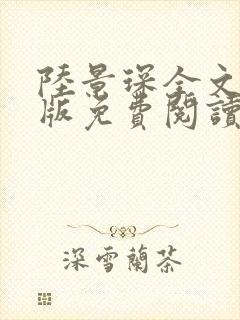 陸景琛全文
版免費閱讀
深雪蘭茶